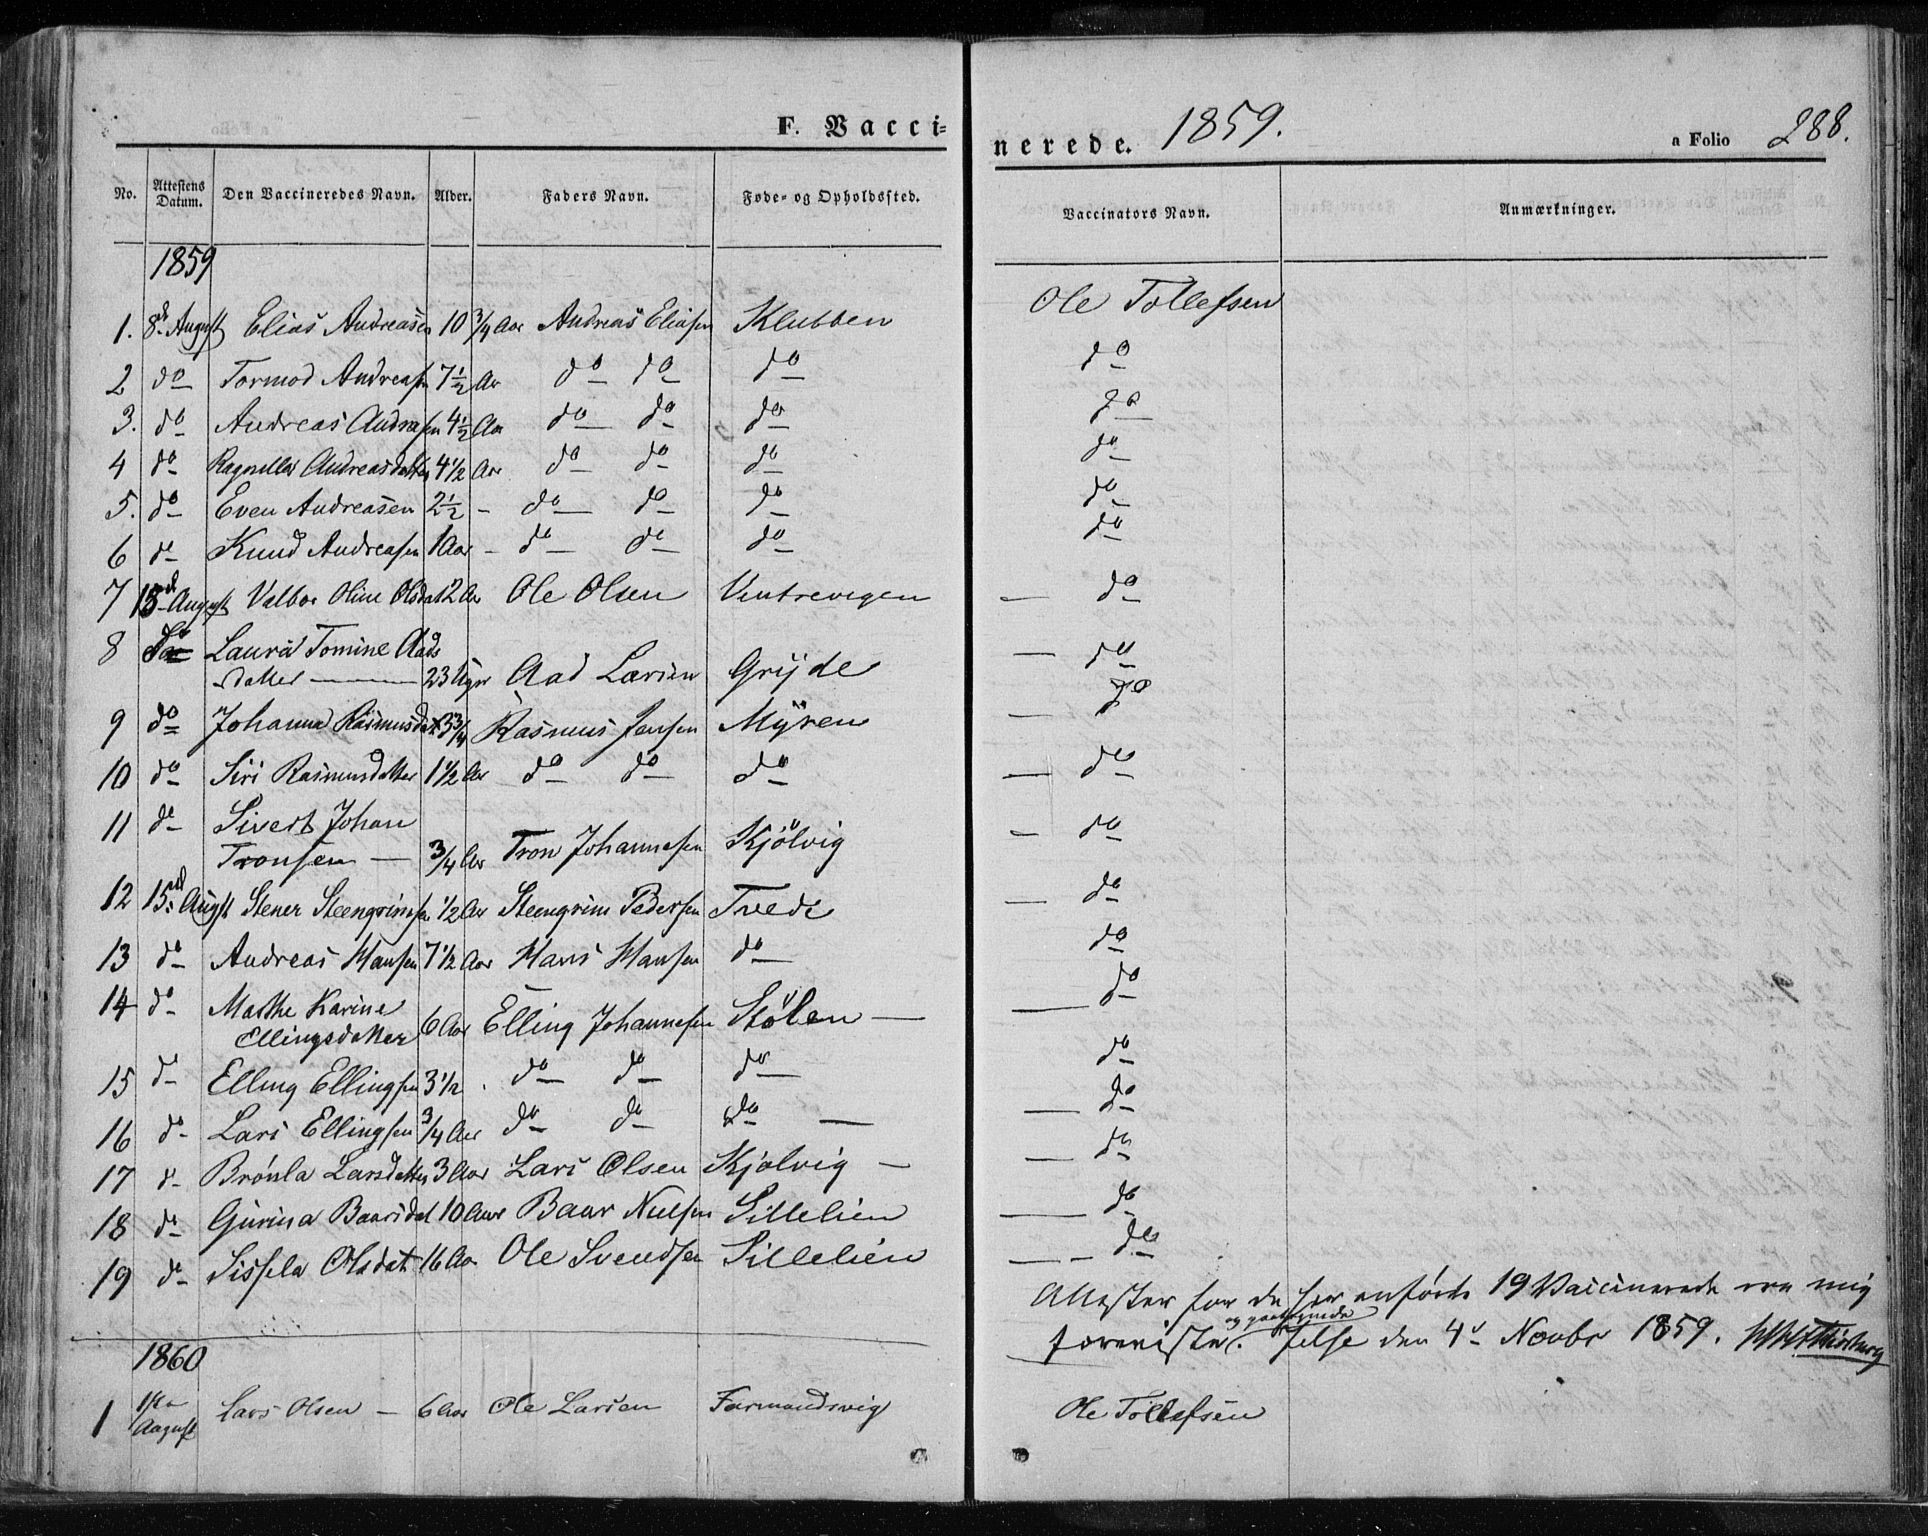 F. Vacci-
nerede. 1859.
a Folio 288.
No. Attestens Datum. Den Vaccineredes Navn. Alder. Faders Navn. Føde- og Opholdssted. Vaccinators Navn. Anmærkninger.
1859
1. 8de August Elias Andreasen 10 3/4 Aar Andreas Eliasen Klubben Ole Tollefsen
2 do Tormod Andreasen 7 1/2 Aar do do do do
3. do Andreas Andreasen 4 1/2 Aar do do do do
4 do Andreasdatter 4 1/2 Aar do do do do
5. do Even Andreasen 2 1/2 - do do do do
6 do Knud Andreasen 1 Aar - do do do do
7 August Valbor Oline Olsdat 12 Aar Ole Olsen Ventrevigen - do
8 do Laura Tomine Aads
datter 23 Uger Aad Larsen Grijde - do
9 do Johanna Rasmusdat 3 3/4 Rasmus Jensen Myren - do
10 do Siri Rasmusdatter 1 1/2 Aar do do do - do
11 do Sivert Johan
Tronsen - 3/4 Aar Tron Johannesen Kjölvig - do
12 15de Augst Stener Steengrimsen 1/2 Aar Steengrim Pedersen Tvede - do
13 do Andreas Hansen 7 1/2 Aar Hans Hansen do do
14 do Marthe Karine
Ellingsdatter 6 Aar Elling Johannesen Stölen - - do
15 do Elling Ellingsen 3 1/2 do do do do
16 do Lars Ellingsen 3/4 Aar do do do - - do
17 do Larsdatter 3 Aar Lars Olsen Kjølvig - - do
18 do Gurina Baarsdat 10 Aar Baar Nielsen Lillelien - do
19 do Sissela Olsdat 16 Aar Ole Svendsen Lillelien - do
Attester for de her anførte 19 Vaccinerede ere mig
foreviste. den 4de Novbr 1859.
1860
1 August Lars Olsen - 6 Aar Ole Larsen Farmandsvig Ole Tollefsen